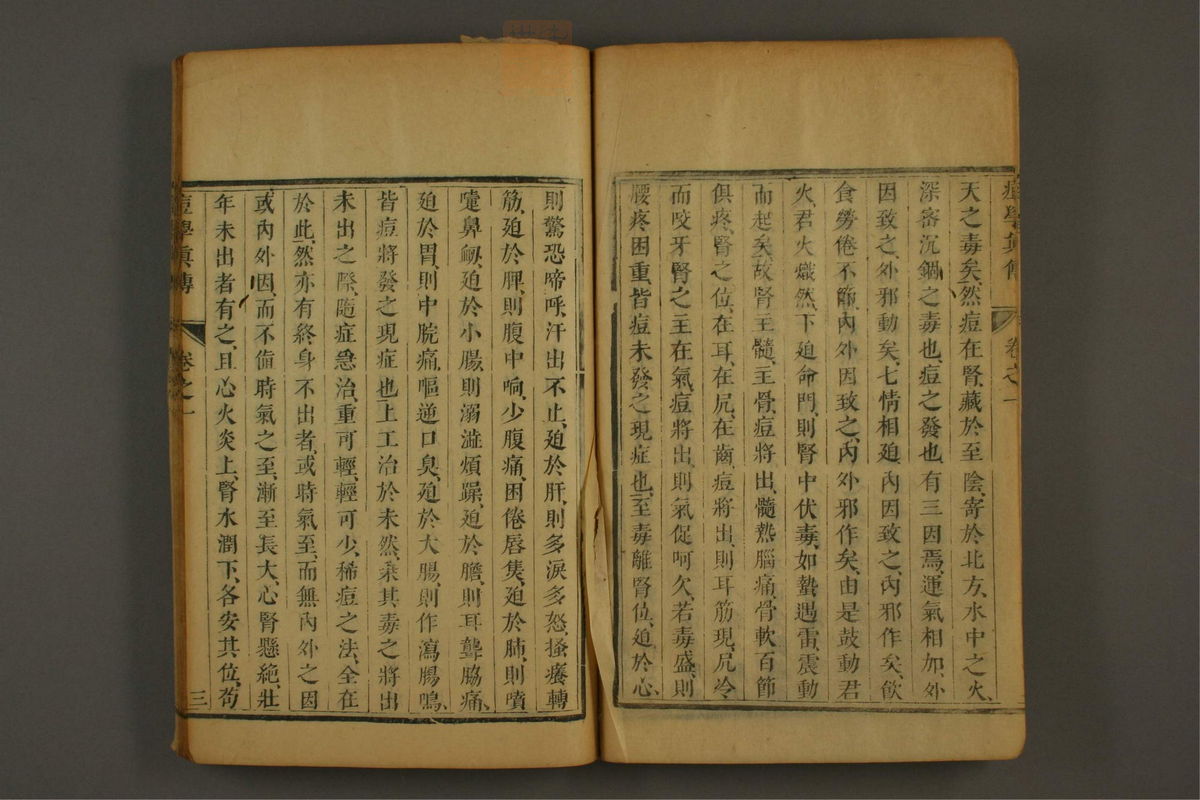 痘學真傳 卷之一
天之毒矣、然痘在腎、藏於至陰、寄於北方、水中之火、
深密沉錮之毒也、痘之發也、有三因焉、運氣相加、外
因致之、外邪動矣、七情相廹、內因致之、內邪作矣、飲
食勞倦不節、內外因致之、內外邪作矣、由是鼓動君
火、君火熾然、下廹命門、則腎中伏毒、如蟄遇雷、震動
而起矣、故腎主髓、主骨、痘將出、髓熱腦痛、骨軟百節
俱疼、腎之位、在耳、在尻、在齒、痘將出、則耳筋現、尻冷
而咬牙、腎之主在氣、痘將出、則氣促呵欠、若毒盛、則
腰疼困重、皆痘未發之現症也、至毒離腎位、廹於心、
則驚恐啼呼、汗出不止、廹於肝、則多淚多怒、搔癢轉
筋、廹於脾、則腹中响、少腹痛、困倦唇焦、廹於肺、則噴
嚏鼻衂、廹於小腸、則溺澁煩躁、廹於膽、則耳聾脇痛、
廹於胃、則中脘痛、嘔逆口臭、廹於大腸、則作瀉腸鳴、
皆痘將發之現症也、上工治於未然、乘其毒之將出
未出之際、隨症急治、重可輕、輕可少、稀痘之法、全在
於此、然亦有終身不出者、或時氣至、而無內外之因
或內外因、而不值時氣之至、漸至長大、心腎懸絕、壯
年未出者有之、且心火炎上、腎水潤下、各安其位、苟
痘學真傳 卷之一 三